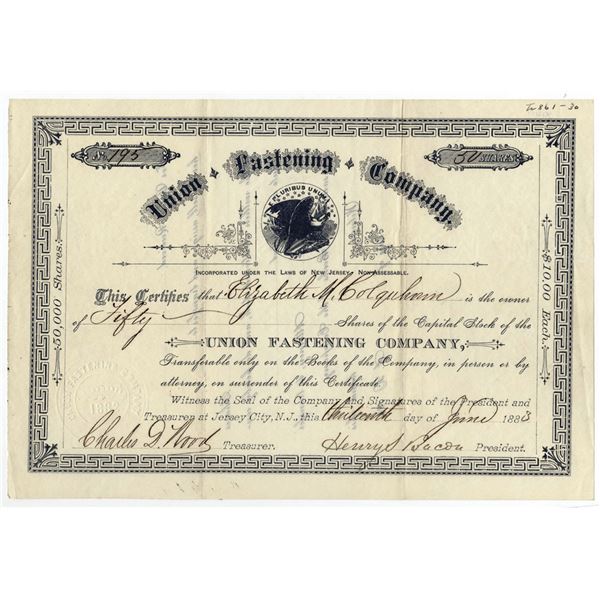 Tu861-30
No. 195
50 SHARES
Union Fastening Company.
E PLURIBUS UNUM
INCORPORATED UNDER THE LAWS OF NEW JERSEY. NON-ASSESSABLE.
50,000 Shares.
$10.00 Each.
This Certifies that Elizabeth M. Colquhoun is the owner
of Fifty Shares of the Capital Stock of the
UNION FASTENING COMPANY,
Transferable only on the Books of the Company, in person or by
attorney, on surrender of this Certificate.
Witness the Seal of the Company and Signatures of the President and
Treasurer at Jersey City, N.J., this thirteenth day of June 1883
Charles D. Wood Treasurer. Henry S Bacon President.
FASTENING